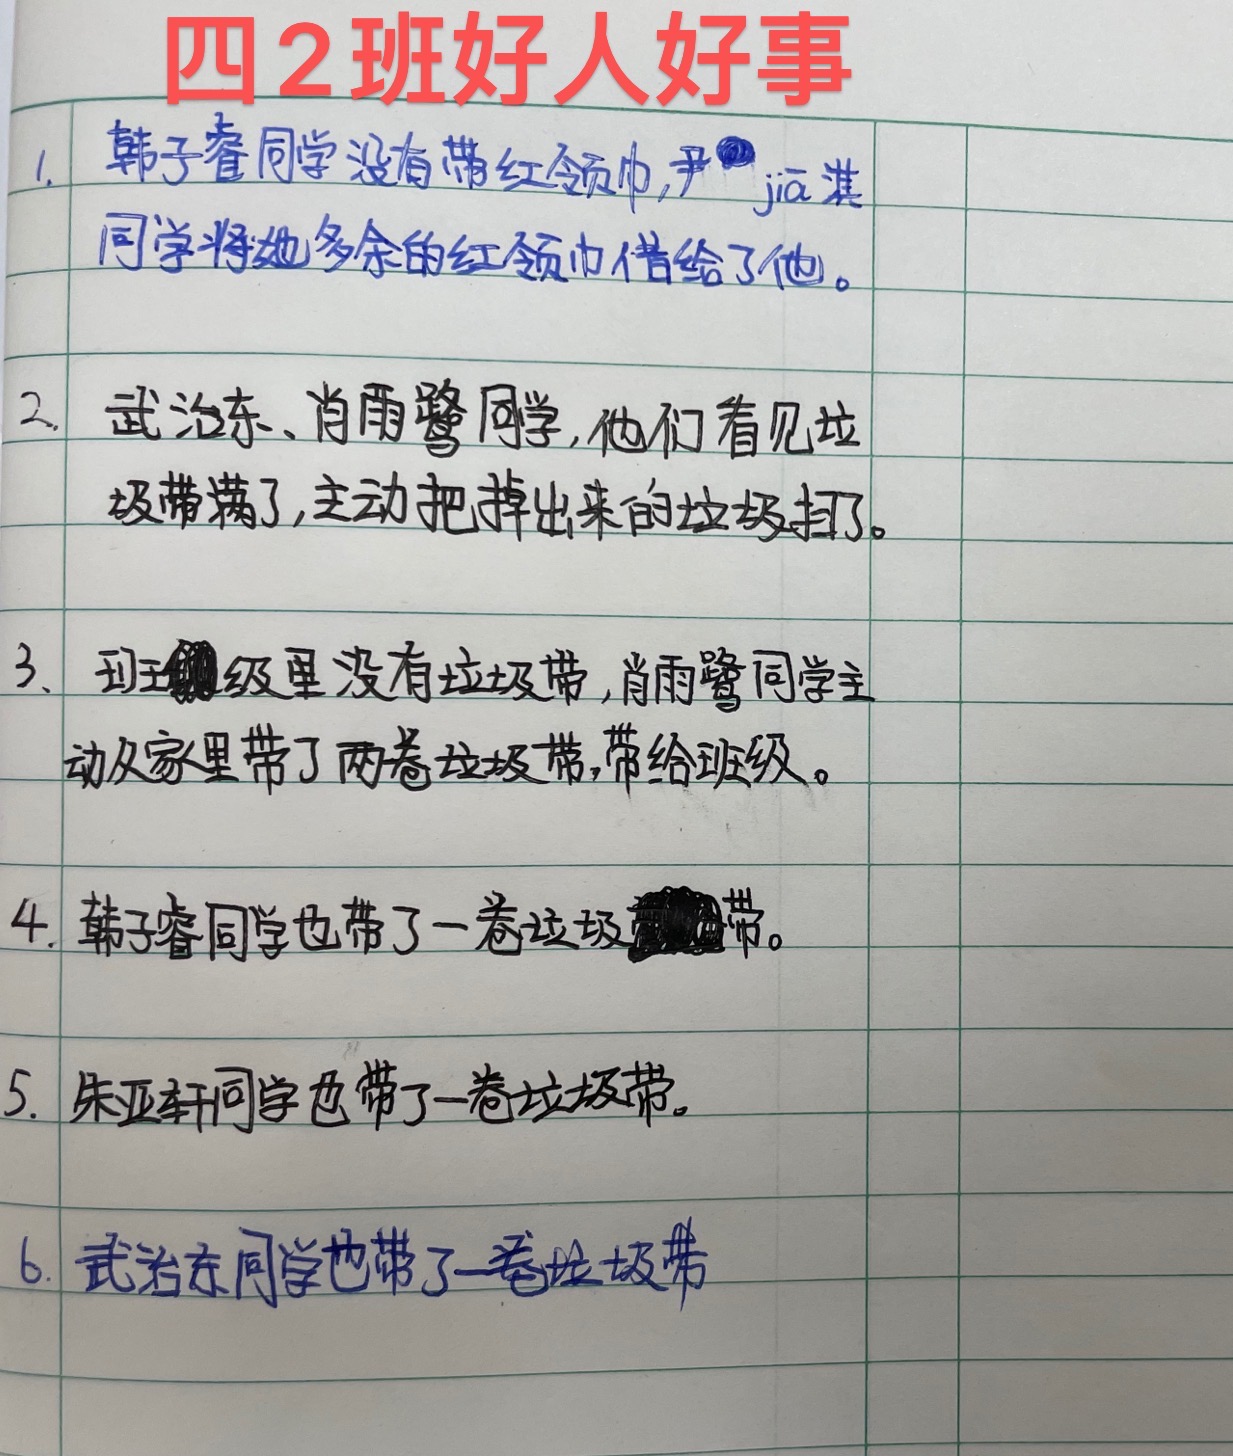 四2班好人好事
1. 韩子睿同学没有带红领巾,尹jiā淇
同学将她多余的红领巾借给了他。
2. 武治东、肖雨鹭同学,他们看见垃
圾带满了,主动把掉出来的垃圾扫了。
3、班级里没有垃圾带,肖雨鹭同学主
动从家里带了两卷垃圾带,带给班级。
4. 韩子睿同学也带了一卷垃圾带。
5. 朱亚轩同学也带了一卷垃圾带。
6. 武治东同学也带了一卷垃圾带